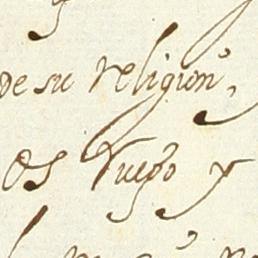 de su religion,
os Ruego y